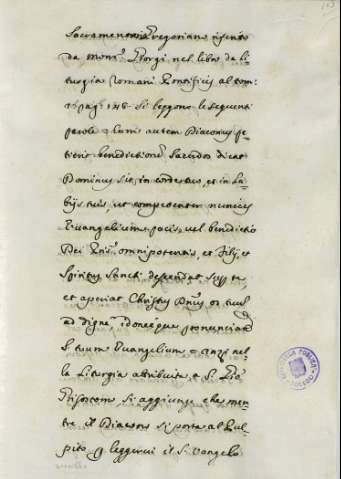 Sacramentario Gregoriano riferito
da Mons.r Giorgi nel libro de Li-
turgia Romani Pontificis al tom.
pag. si leggono le seguenti
parole. Cum autem Diaconus pe-
tierit benedictione Sacerdos dicat
Dominus sit in corde tuo, et in la-
bijs tuis, ut competenter nuncies
Evangelium pacis, vel benedictio
Dei Pris omnipotentis, et Filij, et
Spiritus Sancti descendat sup. te,
et aperiat Christus Dnus os tuum
ad digne, idoneeque pronunciand
Suum Evangelium e anzi nel-
la Liturgia attribuita a S. Gio
Grisostomo si aggiunge che men-
tre il Diacono si porta al Pul-
pito p leggervi il S. Vangelo